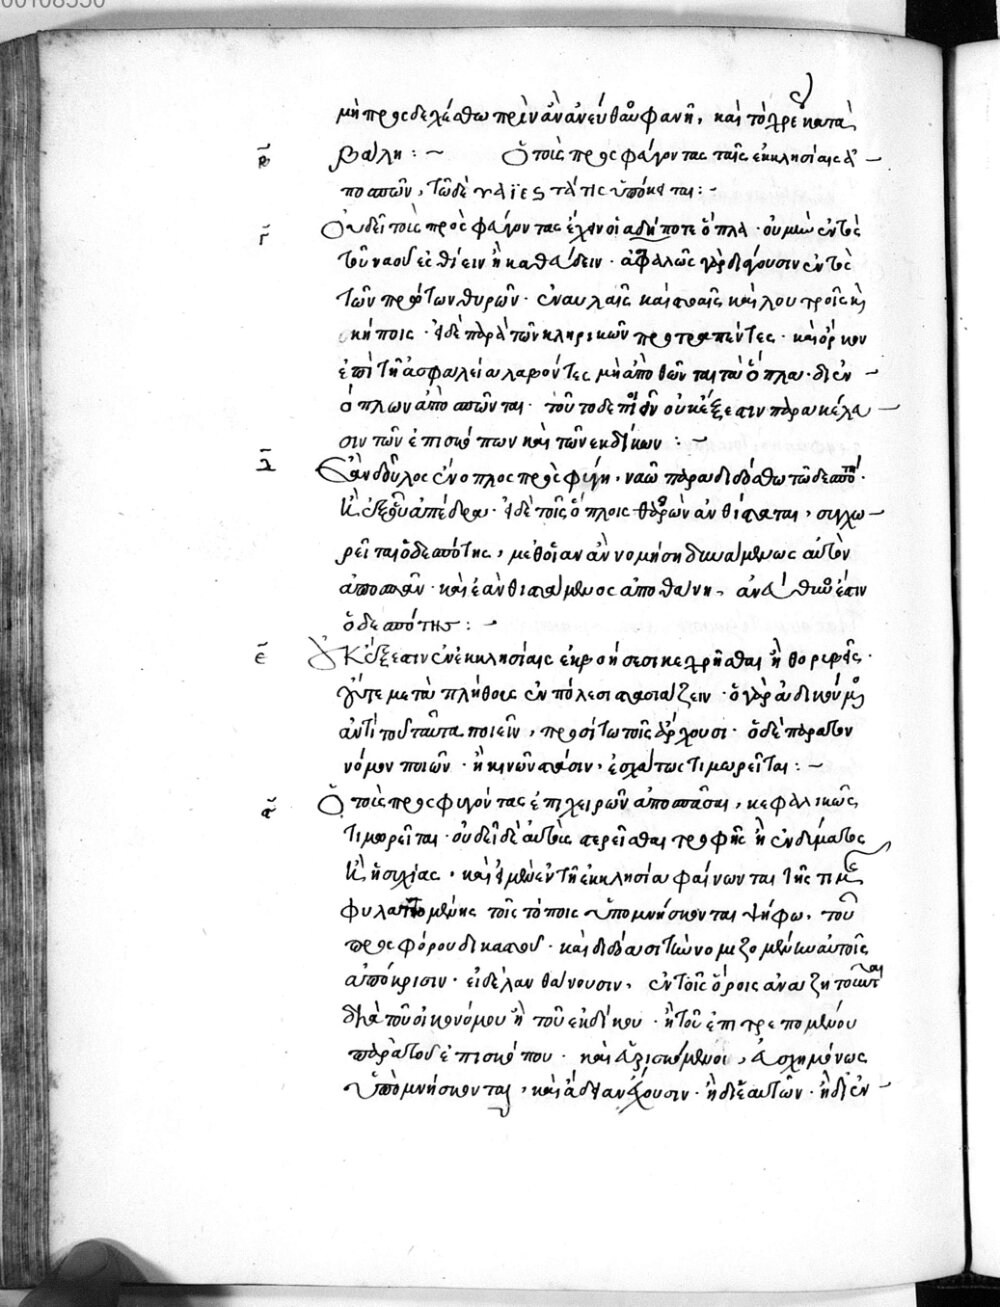 00108550
μὴ προσδεχέσθω πρὶν ἂν ἀνεύθυ φανῆ, καὶ τὸ χρέ κατα
β βάλη : ~ Ὁ τοὺς προσφεύγοντας ταῖς ἐκκλησίαις ἀ
ποσπῶν, τῶδε
γ Οὐ δεῖ τοὺς πρὸς φεύγοντας ἔχειν οἱαδήποτε ὅπλα · οὐ μὴν ἐντὸς
τοῦ ναοῦ ἐσθίειν ἢ καθεύδειν · ἀσφαλῶς γὰρ διάγουσιν ἐντὸς
τῶν πρώτων θυρῶν · ἐν αὐλαῖς καὶ στοαῖς καὶ λουτροῖς καὶ
κήποις · εἰ δὲ παρὰ τῶν κληρικῶν προτραπέντες · καὶ ὅρκον
ἐπὶ τῆ ἀσφαλεία λαβόντες μὴ ἀποθῶνται τὰ ὅπλα · δι' ἐν
όπλων ἀποσπῶνται · τοῦτο δὲ ποιεῖν οὐκ ἔξεστιν παρὰ κέλευ
σιν τῶν ἐπισκόπων καὶ τῶν ἐκδίκων : ~
δ Ἐὰν δοῦλος ἔνοπλος προσφύγη ναῶ παραδιδόσθω τῶ δεσπότη ·
καὶ ἐξ οὗ ἀπέδρα · εἰ δὲ τοῖς ὅπλοις θαρρῶν ἀνθίσταται, συγχω
ρεῖται ὁ δεσπότης, μεθ' οἵαν ἂν νομήση δυνάμεως αὐτὸν
ἀποσπᾶν · καὶ ἐὰν θιστάμενος ἀποθάνη, ἀνεύθυνός ἐστιν
ὁ δεσπότης : ~
ε Οὐκ ἔξεστιν ἐν ἐκκλησίαις ἐκβοήσεσι κεχρῆσθαι ἢ θορύβοις ·
οὔτε μετὰ πλήθους ἐν πόλεσι στασιάζειν · ὁ γὰρ ἀδικούμενος
ἀντὶ τοῦ ταῦτα ποιεῖν, προσίτω τοῖς ἄρχουσι · ὁ δὲ παρὰ τὸν
νόμον ποιῶν · ἢ κινῶν στάσιν, ἐσχάτως τιμωρεῖται : ~
ϛ Ὁ τοὺς προσφυγόντας ἐπιχειρῶν ἀποσπᾶσαι, κεφαλικῶς
τιμωρεῖται · οὐ δεῖ δὲ αὐτοὺς στερεῖσθαι τροφῆς ἢ ἐνδύματος
καὶ ἡσυχίας · καὶ εἰ μὲν ἐν τῆ ἐκκλησία φαίνωνται τῆς τιμῆς
φυλαττομένης τοῖς τόποις ὑπομνήσκονται ψήφω, τοῦ
προσφόρου δικαστοῦ · καὶ διδόασι τὴν νομιζομένην αὐτοῖς
ἀπόκρισιν · εἰ δὲ λανθάνουσιν, ἐν τοῖς ὅροις ἀναζητοῦνται
διὰ τοῦ οἰκονόμου ἢ τοῦ ἐκδίκου · ἢ τοῦ ἐπιτρεπομένου
παρὰ τοῦ ἐπισκόπου · καὶ εὑρισκόμενοι, εὐσχημόνως
ὑπομνήσκονται, καὶ ἄδειαν ἔχουσιν · ἢ δι' ἑαυτῶν · ἢ δι' ἐν